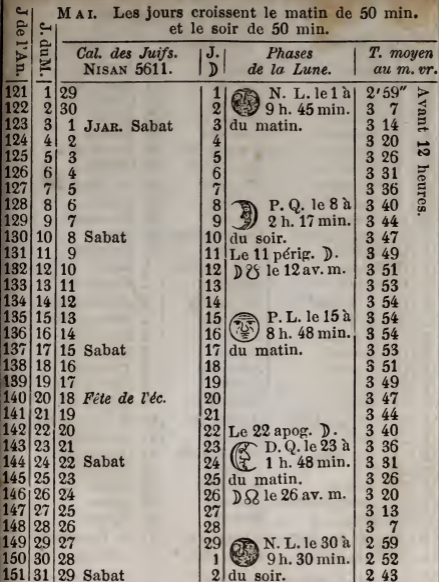 MAI. Les jours croissent le matin de 50 min.
et le soir de 50 min.
J de l'An. J. du M. Cal. des Juifs. NISAN 5611. J. ☽ Phases de la Lune. T. moyen au m. vr.
121 1 29 1 N. L. le 1 à 2'59"
122 2 30 2 9 h. 45 min. 3 7
123 3 1 JJAR. Sabat 3 du matin. 3 14
124 4 2 4 3 20
125 5 3 5 3 26
126 6 4 6 3 31
127 7 5 7 3 36
128 8 6 8 P. Q. le 8 à 3 40
129 9 7 9 2 h. 17 min. 3 44
130 10 8 Sabat 10 du soir. 3 47
131 11 9 11 Le 11 périg. ☽. 3 49
132 12 10 12 ☽☋ le 12 av. m. 3 51
133 13 11 13 3 53
134 14 12 14 3 54
135 15 13 15 P. L. le 15 à 3 54
136 16 14 16 8 h. 48 min. 3 54
137 17 15 Sabat 17 du matin. 3 53
138 18 16 18 3 51
139 19 17 19 3 49
140 20 18 Fête de l'éc. 20 3 47
141 21 19 21 3 44
142 22 20 22 Le 22 apog. ☽. 3 40
143 23 21 23 D. Q. le 23 à 3 36
144 24 22 Sabat 24 1 h. 48 min. 3 31
145 25 23 25 du matin. 3 26
146 26 24 26 ☽☊ le 26 av. m. 3 20
147 27 25 27 3 13
148 28 26 28 3 7
149 29 27 29 N. L. le 30 à 2 59
150 30 28 1 9 h. 30 min. 2 52
151 31 29 Sabat 2 du soir. 2 43
Avant 12 heures.